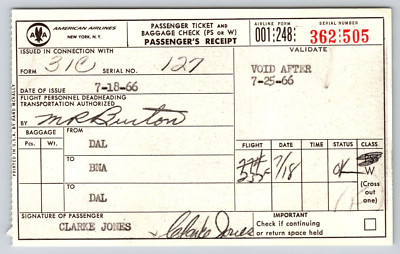 AMERICAN AIRLINES
NEW YORK, N.Y.
PASSENGER TICKET AND
BAGGAGE CHECK (PS OR W)
PASSENGER'S RECEIPT
AIRLINE FORM
001:248:
SERIAL NUMBER
362:505
ISSUED IN CONNECTION WITH
FORM 31C SERIAL NO. 127
VALIDATE
VOID AFTER
7-25-66
DATE OF ISSUE 7-18-66
FLIGHT PERSONNEL DEADHEADING
TRANSPORTATION AUTHORIZED
BY M R Burton
BAGGAGE
Pcs. Wt.
FROM
DAL
TO
BNA
TO
DAL
FLIGHT DATE TIME STATUS CLASS
7/18 OK
W
(Cross
out
one)
PRINTED IN U.S.A. BY RAND McNALLY
SIGNATURE OF PASSENGER
CLARKE JONES Clarke Jones
IMPORTANT
Check if continuing
or return space held